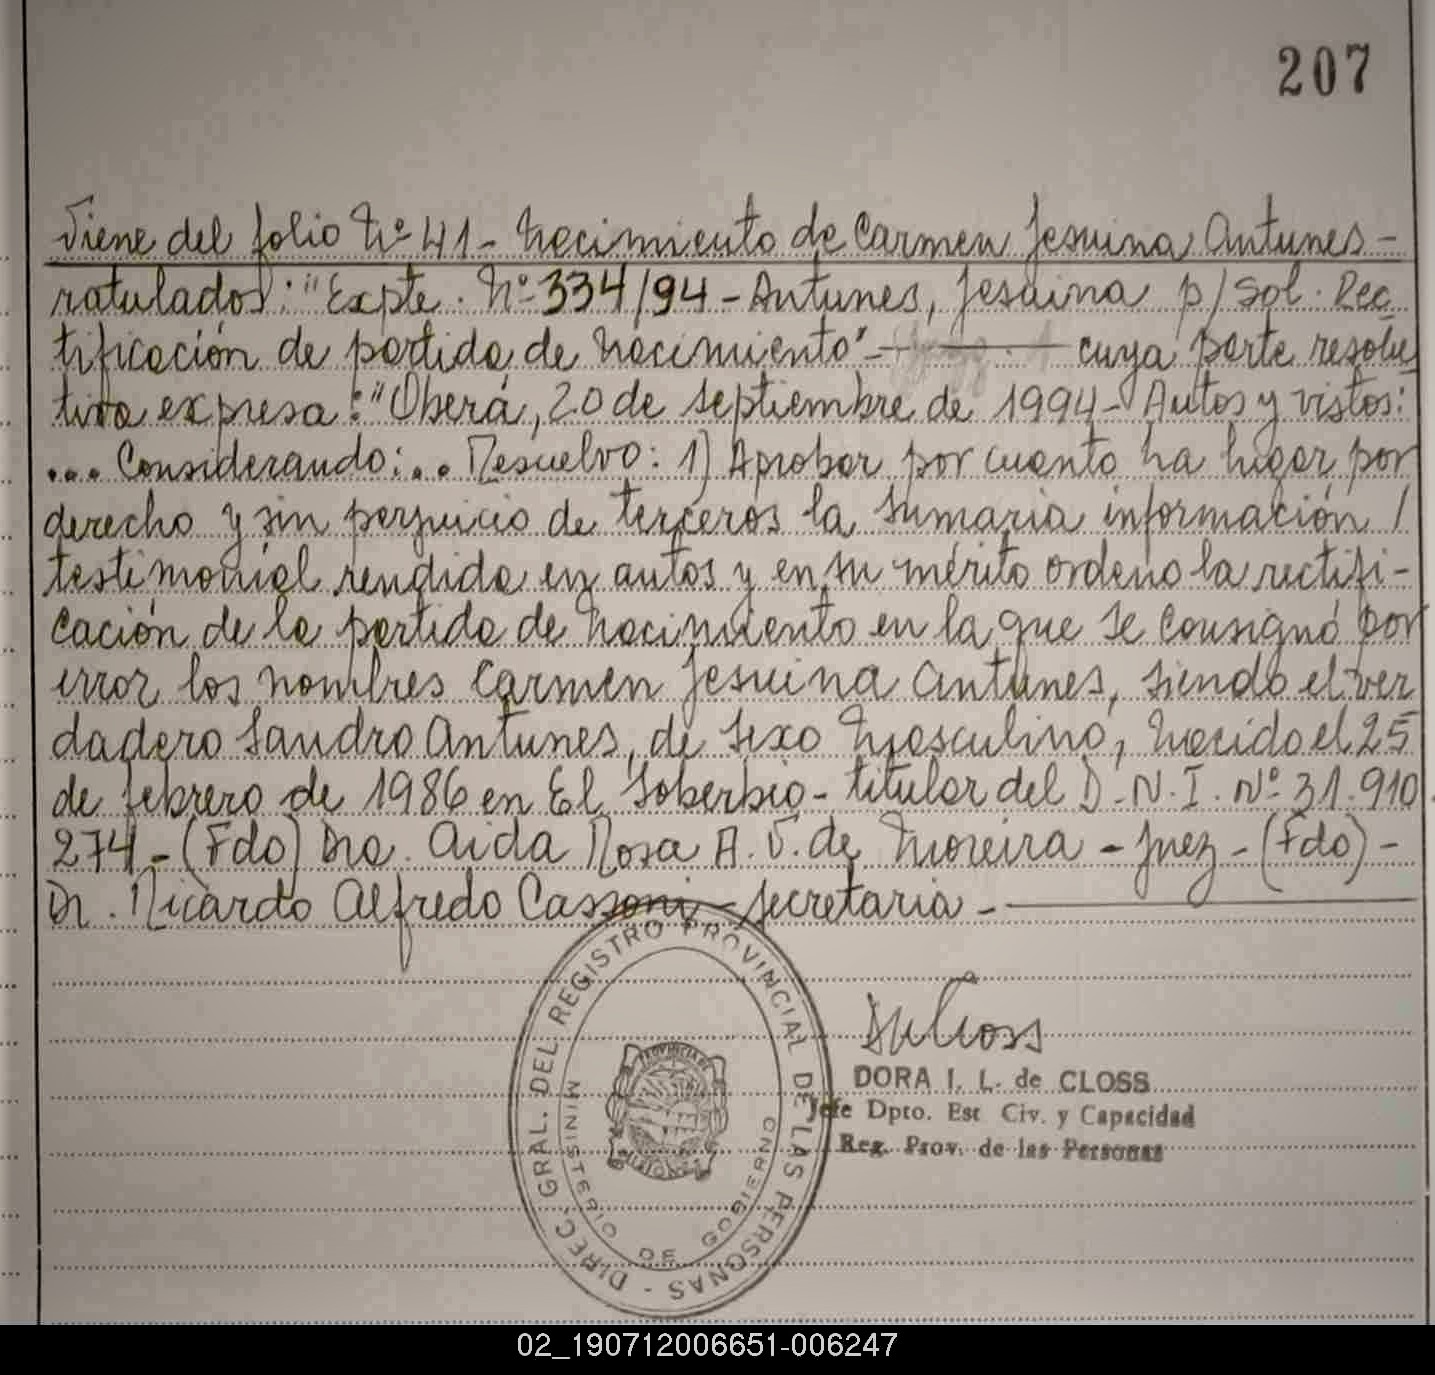 207
Viene del folio Nº 41 - Nacimiento de Carmen Jesuina Antunes -
ratulados: "Expte. Nº 334/94 - Antunes, Jesuina p/ Sol. Rec
tificación de partida de nacimiento" - cuya parte resolu
tiva expresa: "Oberá, 20 de septiembre de 1994 - Autos y vistos:
... Considerando: ... Resuelvo: 1) Aprobar por cuanto ha lugar por
derecho y sin perjuicio de terceros la sumaria información /
testimonial rendida en autos y en su mérito ordeno la rectifi-
cación de la partida de nacimiento en la que se consignó por
error los nombres Carmen Jesuina Antunes, siendo el ver
dadero Sandro Antunes, de sexo Masculino, nacido el 25
de febrero de 1986 en El Soberbio - titular del D.N.I. Nº 31.910
274 - (Fdo) Dra. Aida Rosa A. V. de Moreira - Juez - (Fdo) -
Dr. Ricardo Alfredo Cassoni - secretaria -
DIREC. GRAL. DEL REGISTRO PROVINCIAL DE LAS PERSONAS -
MINISTERIO DE GOBIERNO
PROVINCIA DE
MISIONES
DORA I. L. de CLOSS
Jefe Dpto. Est Civ. y Capacidad
Reg. Prov. de las Personas
02_190712006651-006247